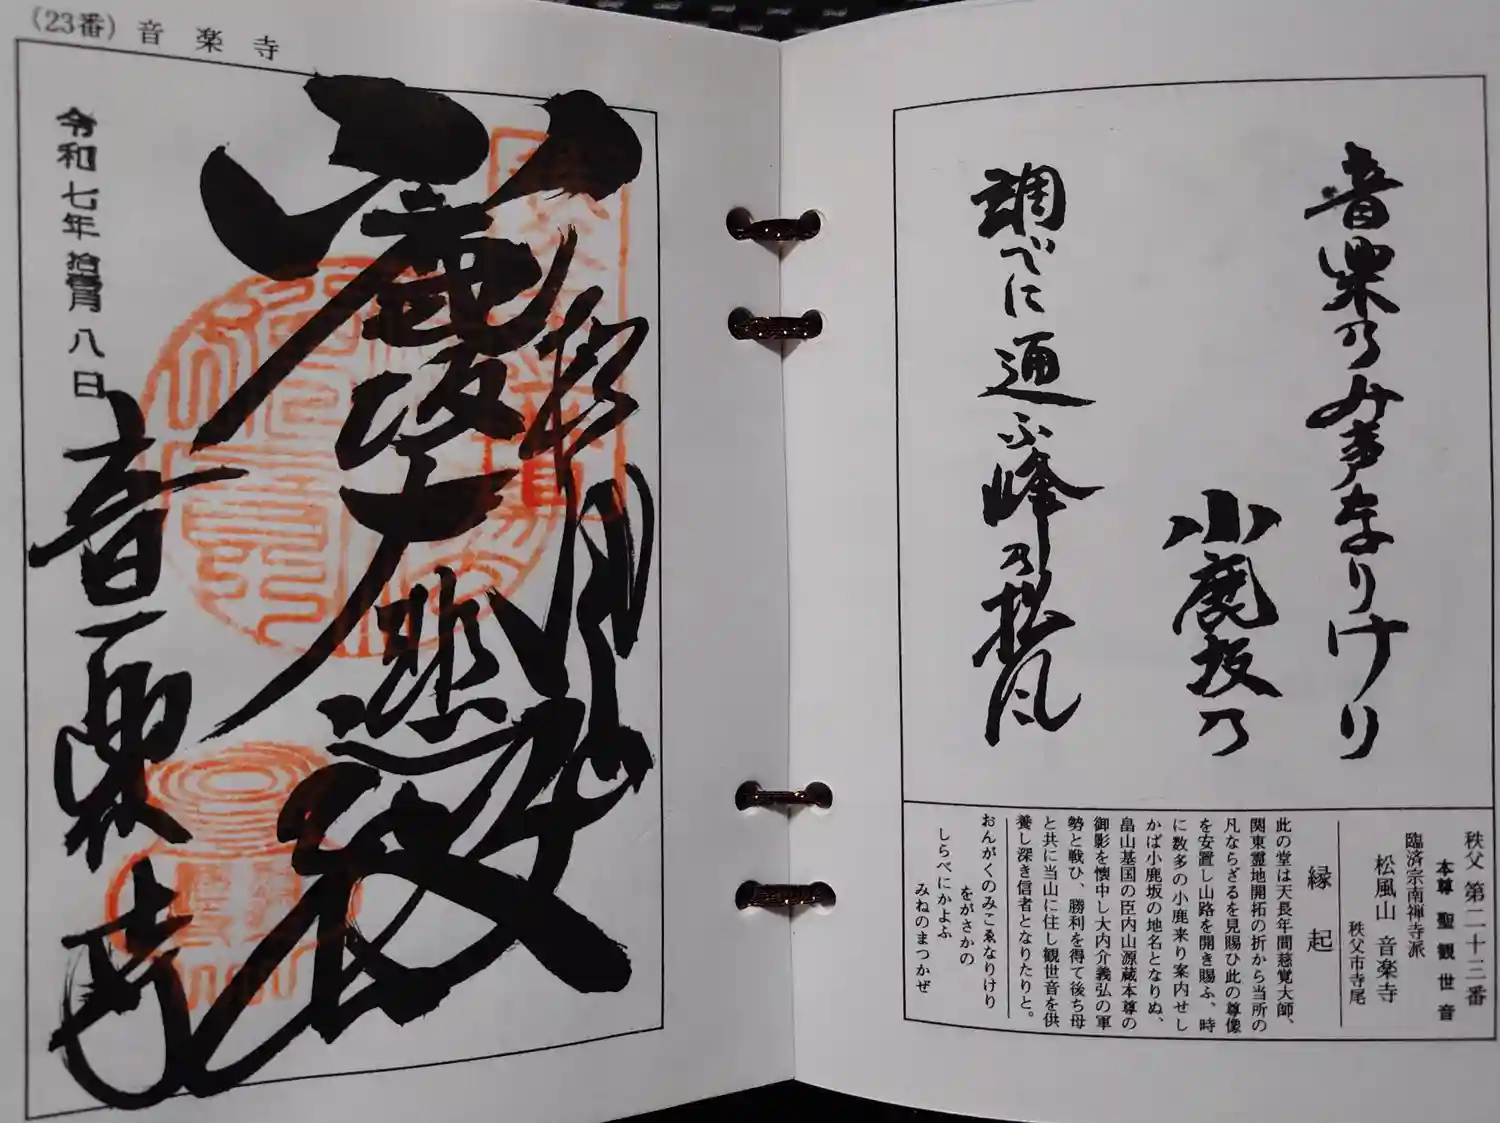 音楽乃み声なりけり
小鹿坂乃
調べに通ふ峰乃松風
秩父 第二十三番
本尊 聖観世音
臨済宗南禅寺派
松風山 音楽寺
秩父市寺尾
縁起
此の堂は天長年間慈覚大師、
関東霊地開拓の折から当所の
凡ならざるを見賜ひ此の尊像
を安置し山路を開き賜ふ、時
に数多の小鹿来り案内せし
かば小鹿坂の地名となりぬ、
畠山基国の臣内山源蔵本尊の
御影を懐中し大内介義弘の軍
勢と戦ひ、勝利を得て後ち母
と共に当山に住し観世音を供
養し深き信者となりたりと。
おんがくのみこゑなりけり
をがさかの
しらべにかよふ
みねのまつかぜ
(23番) 音楽寺
奉拝
小鹿坂大悲殿
令和七年拾壹月八日
音楽寺